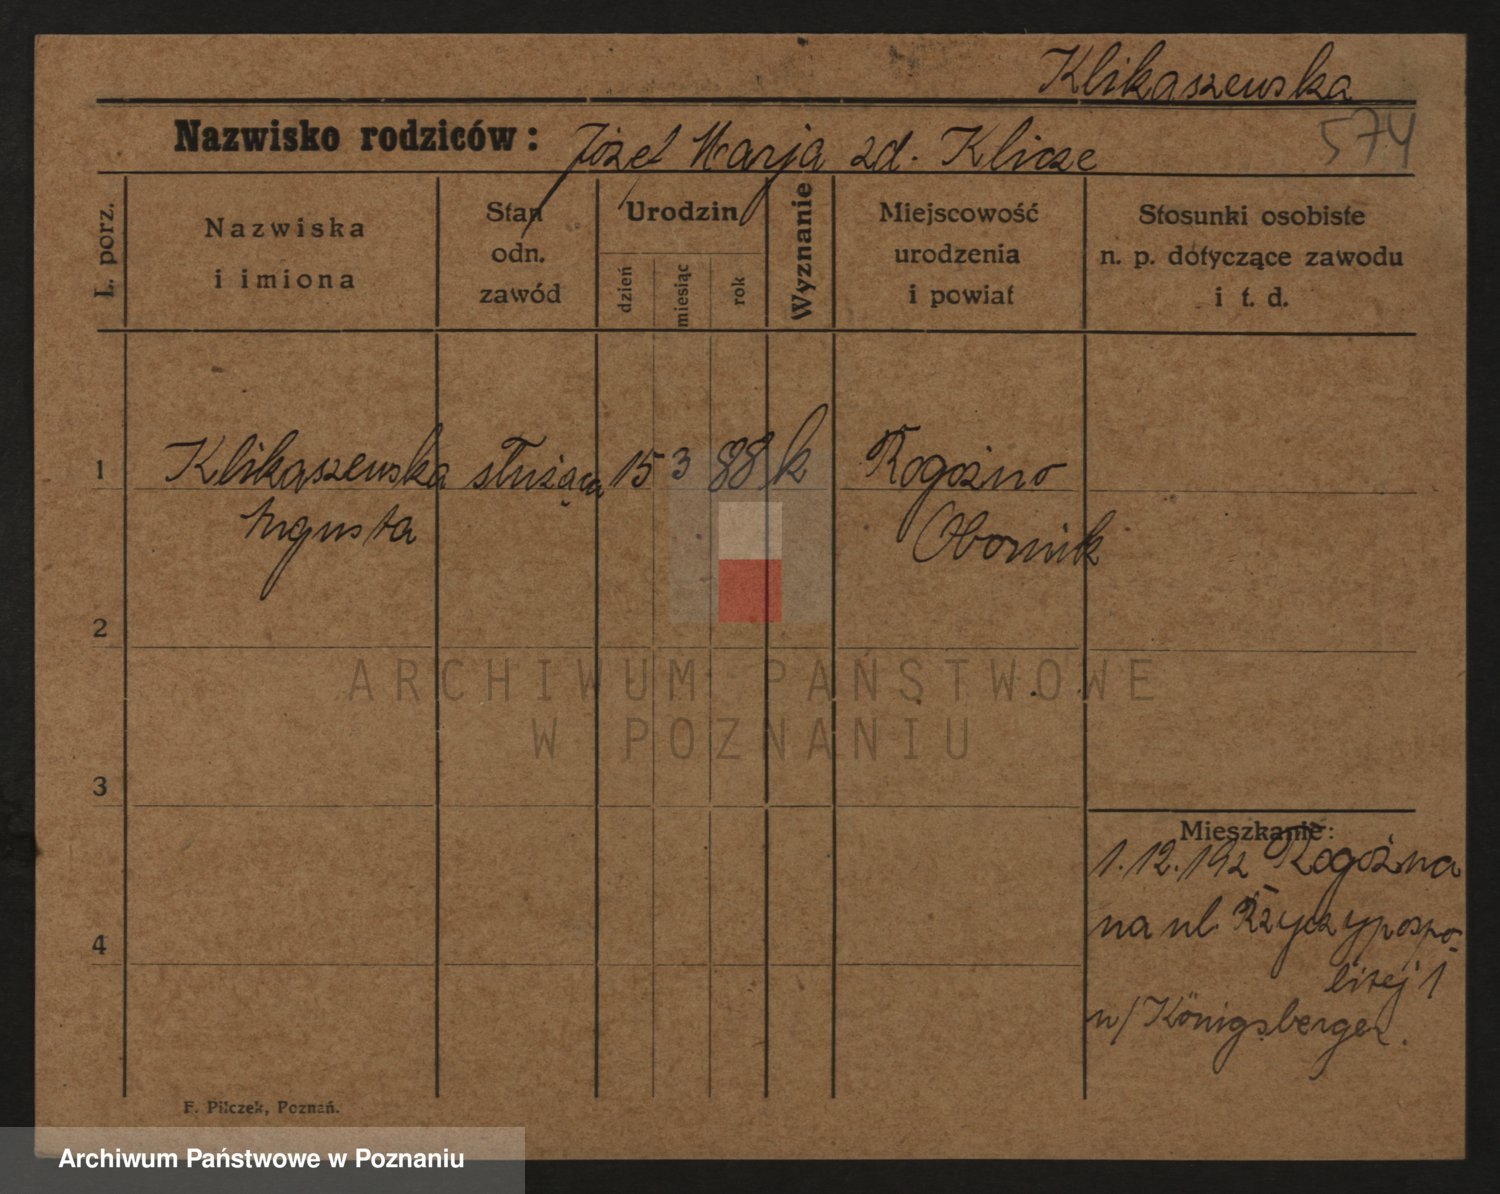 Klikaszewska
574
Nazwisko rodziców: Józef Marja zd. Klicze
L. porz.
Nazwiska
i imiona
Stan
odn.
zawód
Urodzin
dzień
miesiąc
rok
Wyznanie
Miejscowość
urodzenia
i powiat
Stosunki osobiste
n. p. dotyczące zawodu
i t. d.
1 Klikaszewska służąca 15 3 88 k Rogoźno
Augusta Obornik
2
ARCHIWUM PAŃSTWOWE
W POZNANIU
3
Mieszkanie:
1.12.192 Rogoźna
na ul. Rzyczypospo-
litej 1
4
n/Königsberger.
F. Pilczek, Poznań.
Archiwum Państwowe w Poznaniu